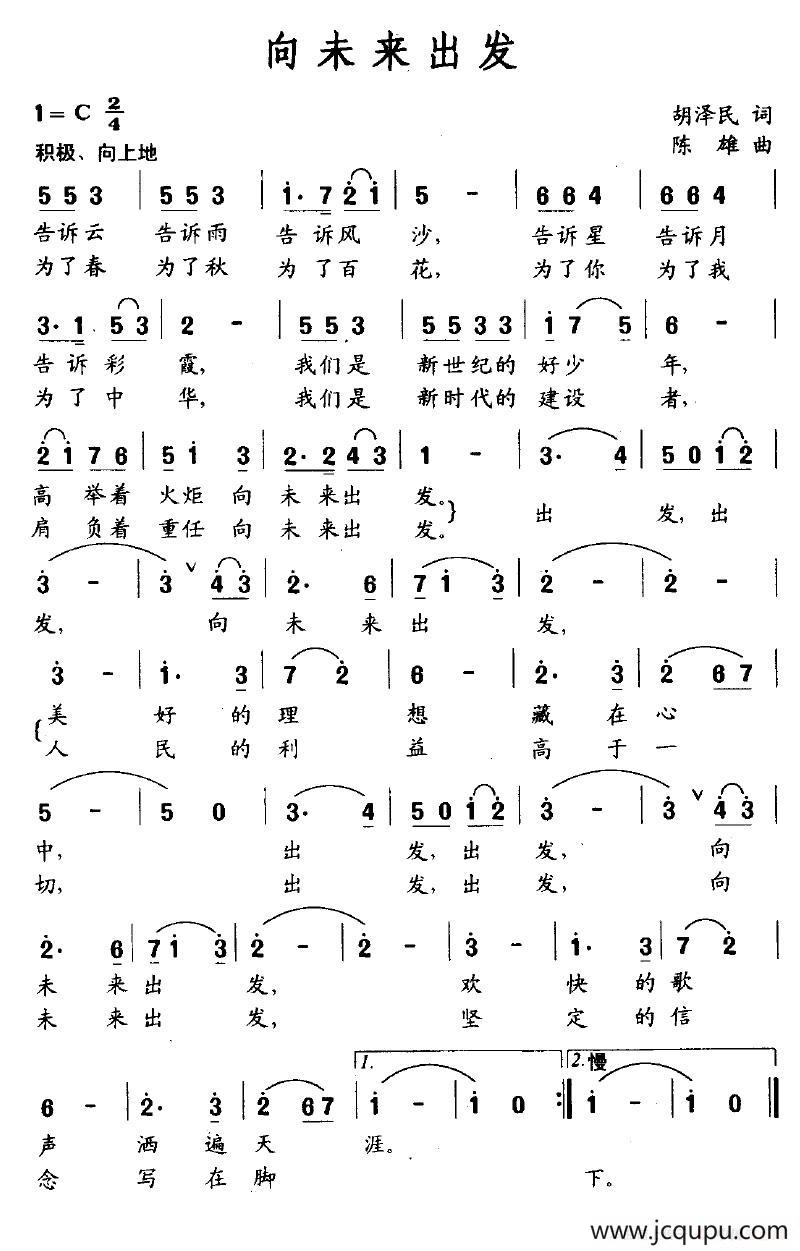 向未来出发
1=C 2/4
胡泽民 词
积极、向上地
陈 雄 曲
5 5 3 | 5 5 3 | i· 7 2 i | 5 - | 6 6 4 | 6 6 4 |
告诉云 告诉雨 告诉风 沙, 告诉星 告诉月
为了春 为了秋 为了百 花, 为了你 为了我
3· 1 5 3 | 2 - | 5 5 3 | 5 5 3 3 | i 7 5 | 6 - |
告诉彩 霞, 我们是 新世纪的 好少 年,
为了中 华, 我们是 新时代的 建设 者,
2 i 7 6 | 5 i 3 | 2· 2 4 3 | 1 - | 3· 4 | 5 0 i 2 |
高 举着 火炬 向 未来出 发。} 出 发, 出
肩 负着 重任 向 未来出 发。
3 - | 3 ∨ 4 3 | 2· 6 | 7 i 3 | 2 - | 2 - |
发, 向 未 来 出 发,
3 - | i· 3 | 7 2 | 6 - | 2· 3 | 2 6 7 |
{美 好 的 理 想 藏 在 心
人 民 的 利 益 高 于 一
5 - | 5 0 | 3· 4 | 5 0 i 2 | 3 - | 3 ∨ 4 3 |
中, 出 发, 出 发, 向
切, 出 发, 出 发, 向
2· 6 | 7 i 3 | 2 - | 2 - | 3 - | i· 3 | 7 2 |
未 来 出 发, 欢 快 的 歌
未 来 出 发, 坚 定 的 信
1. 2.慢
6 - | 2· 3 | 2 6 7 | i - | i 0 :‖ i - | i 0 ‖
声 洒 遍 天 涯。
念 写 在 脚 下。
www.jcqupu.com